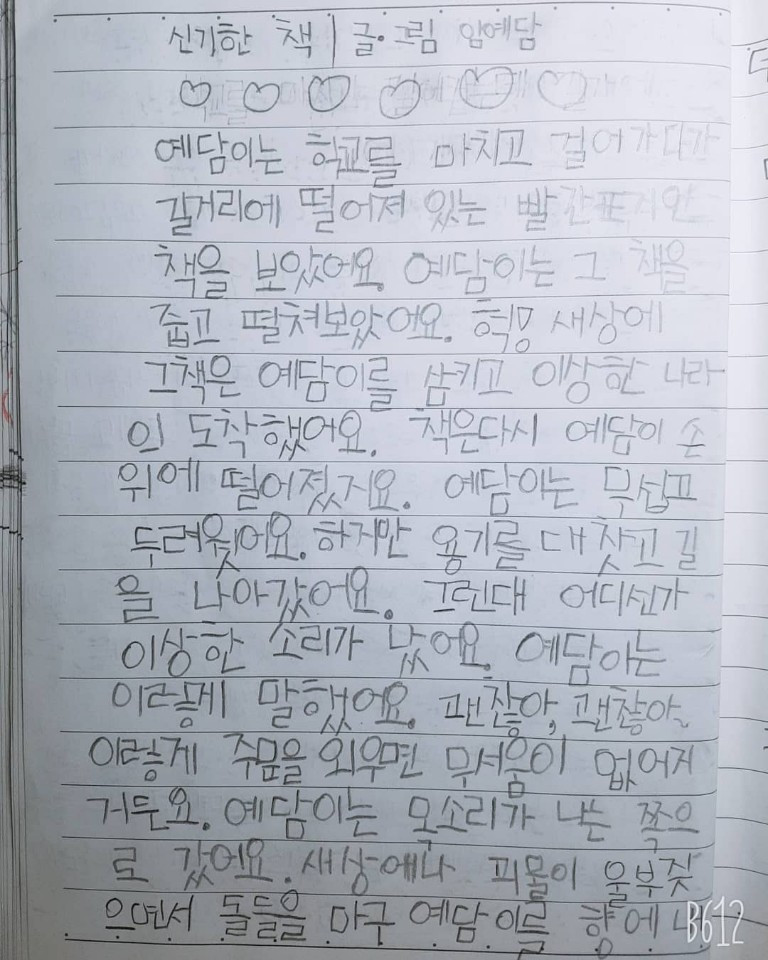 신기한 책 | 글·그림 임예담
예담이는 학교를 마치고 걸어가다가
길거리에 떨어져 있는 빨간표지인
책을 보았어요. 예담이는 그 책을
줍고 펼쳐보았어요. 헉명 새상에
그책은 예담이를 삼키고 이상한 나라
의 도착했어요. 책은다시 예담이 손
위에 떨어졌지요. 예담이는 무섭고
두려웠어요. 하지만 용기를 대찾고 길
을 나아갔어요. 그런대 어디선가
이상한 소리가 났어요. 예담이는
이렇게 말했어요. 괜찮아, 괜찮아~
이렇게 주문을 외우면 무서움이 없어지
거든요. 예담이는 목소리가 나는 쪽으
로 갔어요. 새상에나 괴물이 울부짖
으면서 돌들을 마구 예담이를 향에
B612